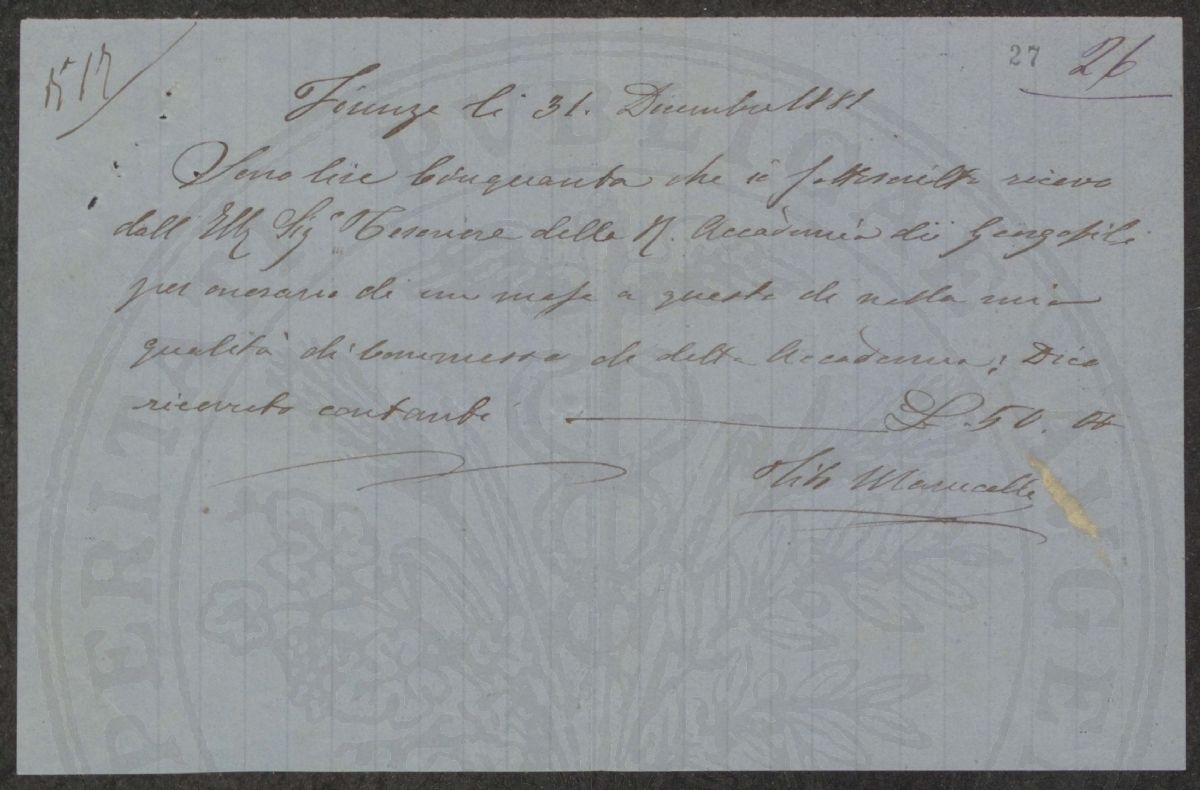 27
26
Firenze li 31. Dicembre 1881
Sono lire Cinquanta che io sottoscritto ricevo
dall Sigr Tesoriere della R. Accademia dei Georgofili
per onorario di un mese a questo dì nella mia
qualità di Commesso di detta Accademia; Dico
ricevuto contanti L. 50. 00
PUBLICAE
PERITATI